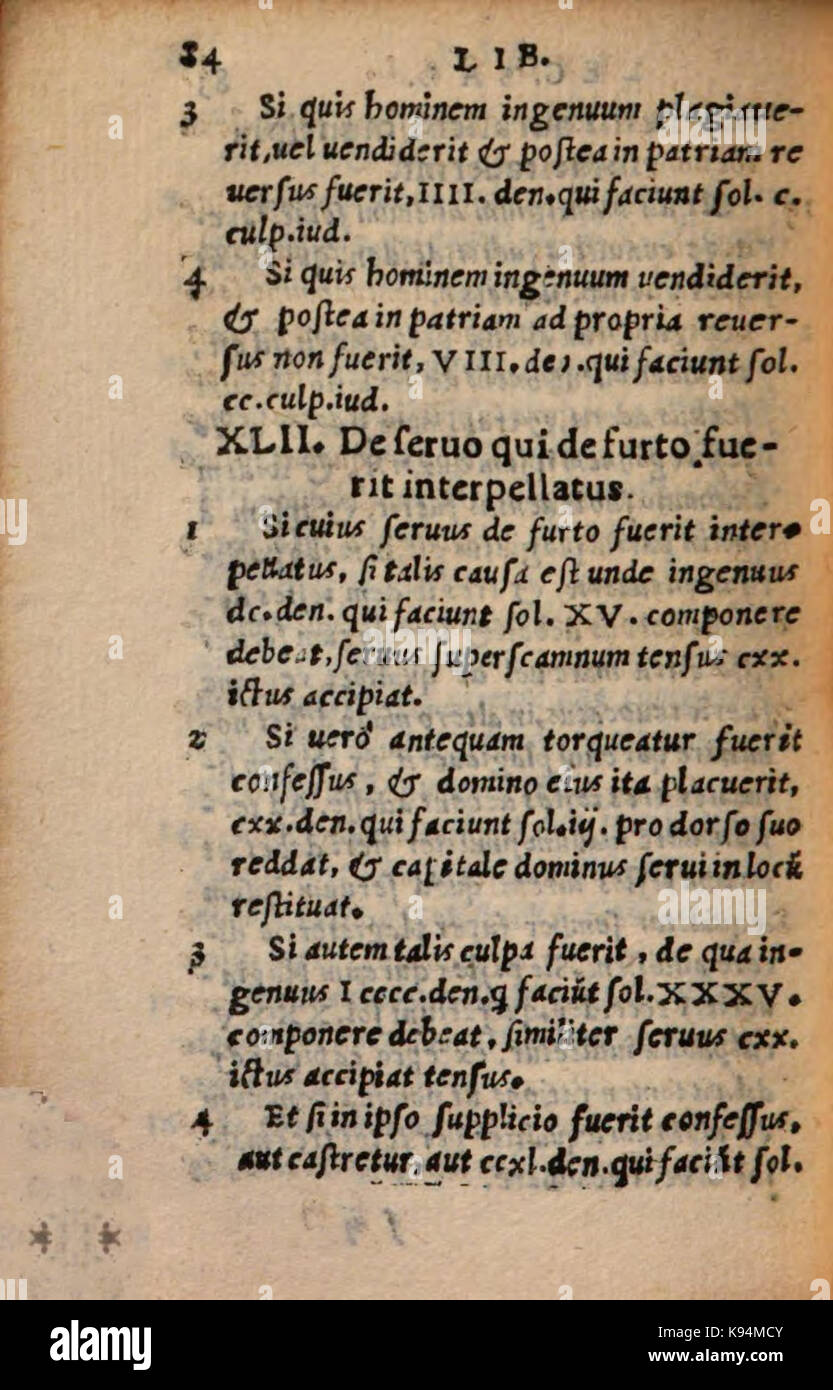 84 LIB.
3 Si quis hominem ingenuum plagiaue-
rit, uel uendiderit & poſtea in patriam re
uerſus fuerit, IIII. den. qui faciunt ſol. c.
culp. iud.
4 Si quis hominem ingenuum vendiderit,
& poſtea in patriam ad propria reuer-
ſus non fuerit, VIII. den. qui faciunt ſol.
cc. culp. iud.
XLII. De ſeruo qui de furto fue-
rit interpellatus.
1 Si cuius ſeruus de furto fuerit inter-
pellatus, ſi talis cauſa eſt unde ingenuus
dc. den. qui faciunt ſol. XV. componere
debeat, ſeruus ſuper ſcamnum tenſus cxx.
ictus accipiat.
2 Si uerò antequam torqueatur fuerit
confeſſus, & domino eius ita placuerit,
cxx. den. qui faciunt ſol. iij. pro dorſo ſuo
reddat, & capitale dominus ſerui in locũ
reſtituat.
3 Si autem talis culpa fuerit, de qua in-
genuus I cccc. den. q faciũt ſol. XXXV.
componere debeat, ſimiliter ſeruus cxx.
ictus accipiat tenſus.
4 Et ſi in ipſo ſupplicio fuerit confeſſus,
aut caſtretur, aut ccxl. den. qui faciũt ſol.
alamy
alamy
K94MCY
www.alamy.com